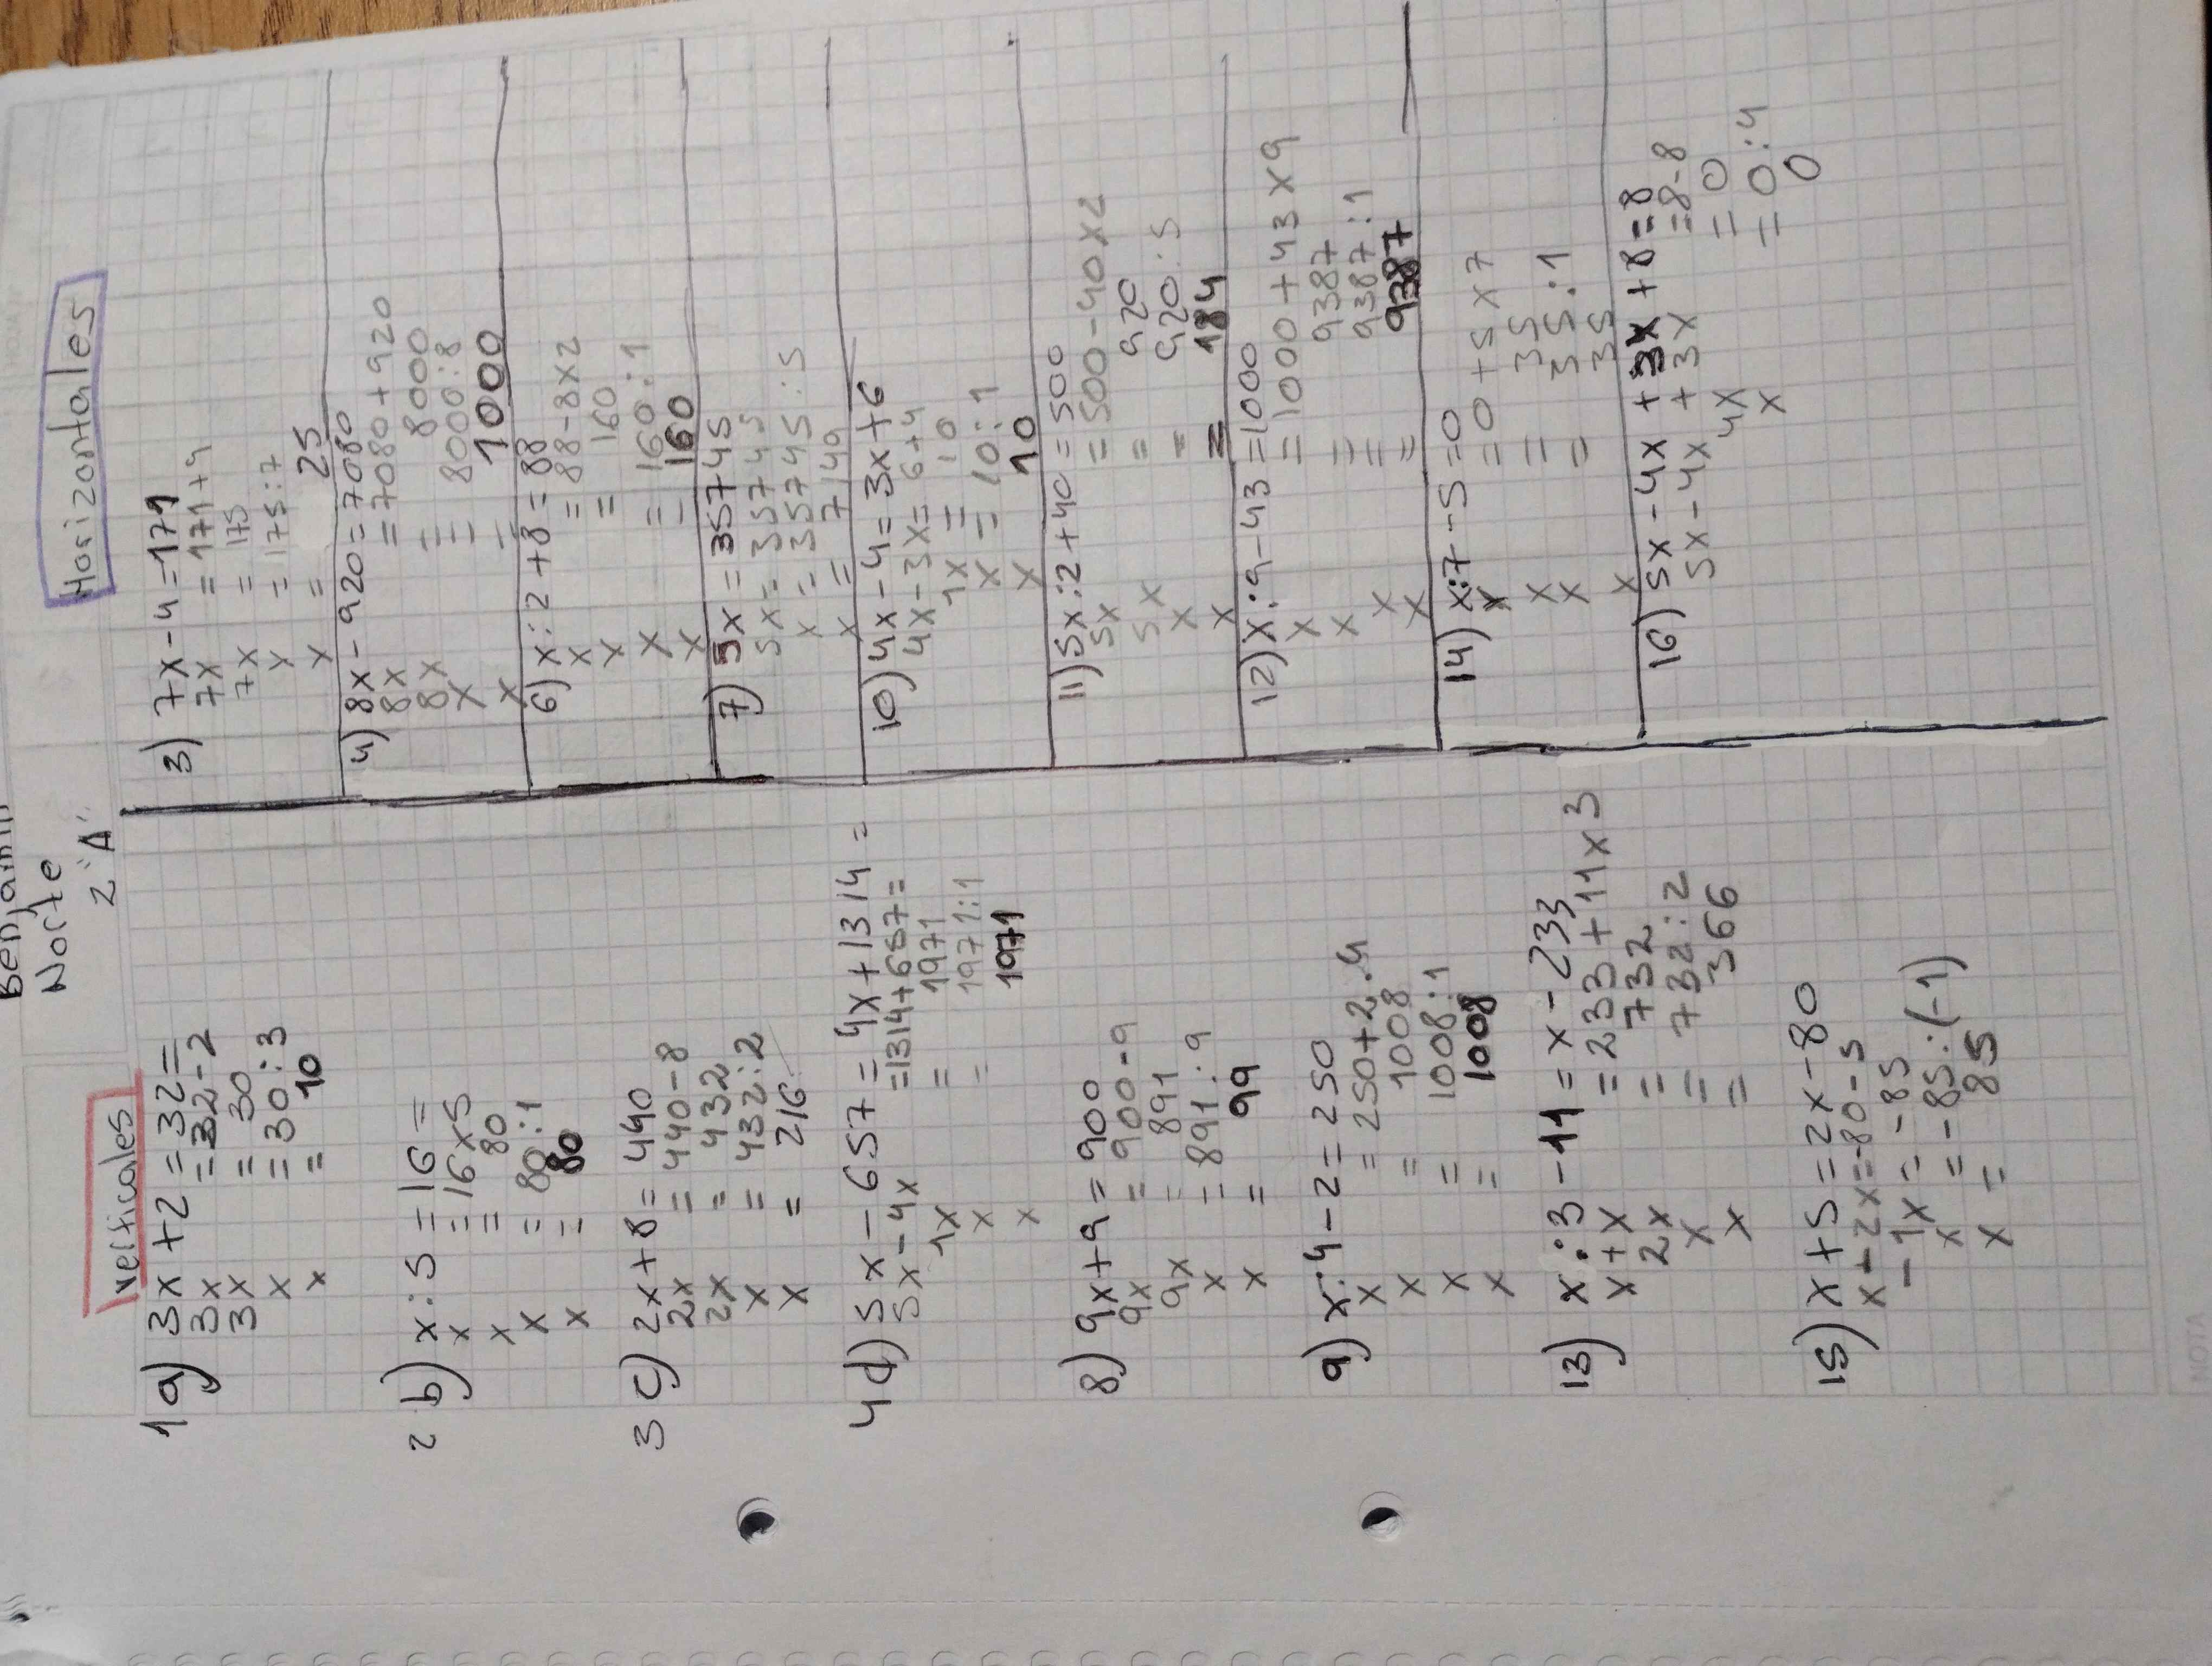 Norte
2 "A"
Verticales
1a) 3x+2=32=
3x =32-2
3x = 30
x =30:3
x = 10
2 b) x:5=16=
x =16x5
x = 80
x = 80:1
x = 80
3 c) 2x+8=440
2x =440-8
2x = 432
x = 432:2
x = 216
4 d) 5x-657=4x+1314=
5x-4x =1314+657=
1x = 1971
x = 1971:1
x 1971
8) 9x+9=900
9x =900-9
9x = 891
x = 891:9
x = 99
9) x:4-2=250
x =250+2.4
x = 1008
x = 1008:1
x = 1008
13) x:3-11=x-233
x+x =233+11x3
2x = 732
x = 732:2
x = 366
15) x+5=2x-80
x-2x=-80-5
-1x=-85
x =-85:(-1)
x = 85
Horizontales
3) 7x-4=171
7x =171+4
7x =175
x =175:7
x = 25
4) 8x-920=7080
8x =7080+920
8x = 8000
x = 8000:8
x = 1000
6) x:2+8=88
x =88-8x2
x = 160
x = 160:1
x = 160
7) 5x=35745
5x=35745
x=35745:5
x= 7149
10) 4x-4=3x+6
4x-3x=6+4
1x = 10
x = 10:1
x 10
11) 5x:2+40=500
5x =500-40x2
5x = 920
x = 920:5
x = 184
12) x:9-43=1000
x =1000+43x9
x = 9387
x = 9387:1
x = 9387
14) x:7-5=0
x =0+5x7
x = 35
x = 35:1
x 35
16) 5x-4x+3x+8=8
5x-4x+3x =8-8
4x =0
x =0:4
0